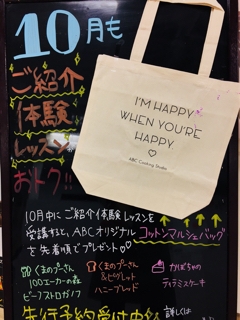 10月も
ご紹介
体験
レッスン
おトク!!
I'M HAPPY
WHEN YOU'RE
HAPPY
ABC Cooking Studio
10月中にご紹介体験レッスンを
受講すると、ABCオリジナル
コットンマルシェバッグ
を先着順でプレゼント♡♡
くまのプーさん
100エーカーの森
ビーフストロガノフ
くまのプーさん
&ピグレット
ハニーブレッド
かぼちゃの
ティラミスケーキ
先行予約受付中
詳しくは